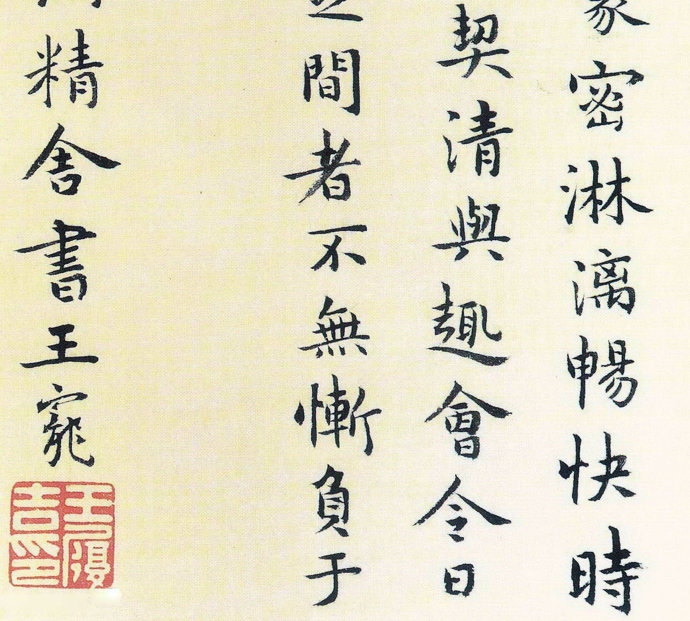 密淋漓暢快時
契清與趣會今日
之間者不無慚負于
精舍書王寵
王履吉印